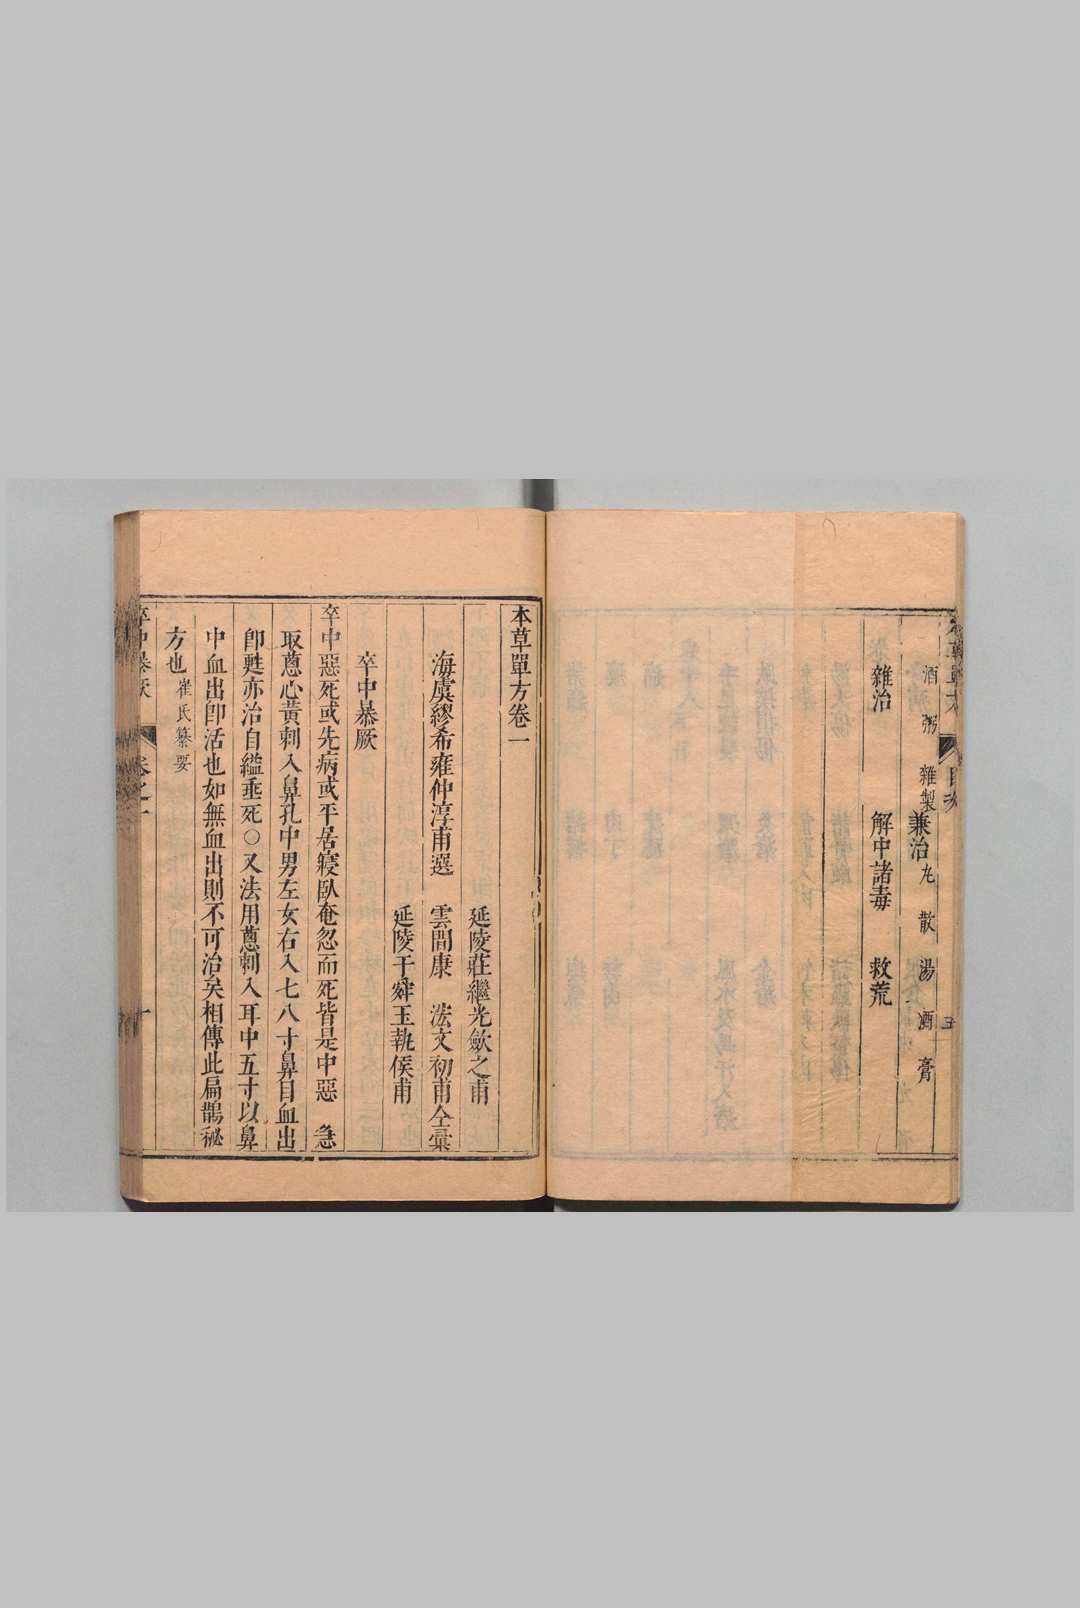 兼治 丸 散 湯 酒 膏
酒 粥 雜製
雜治 解中諸毒 救荒
目次
五
本草單方卷一
延陵莊繼光歛之甫
海虞繆希雍仲淳甫選 雲間康 浤文初甫仝彙
延陵于舜玉執侯甫
卒中暴厥
卒中惡死或先病或平居寢臥奄忽而死皆是中惡 急
取蔥心黃刺入鼻孔中男左女右入七八寸鼻目血出
卽甦亦治自縊垂死○又法用蔥刺入耳中五寸以鼻
中血出卽活也如無血出則不可治矣相傳此扁鵲秘
方也 崔氏纂要
卒中暴厥
卷之一